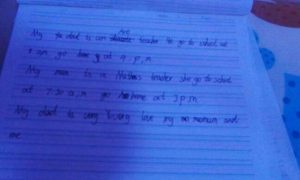 My dad is can Are teacher he go to school at
8 am go home at 9 p.m
My mom is a Mathes teacher she go to school
at 7:30 a.m go home at 3 p.m
My dad is very loving my momum and
me